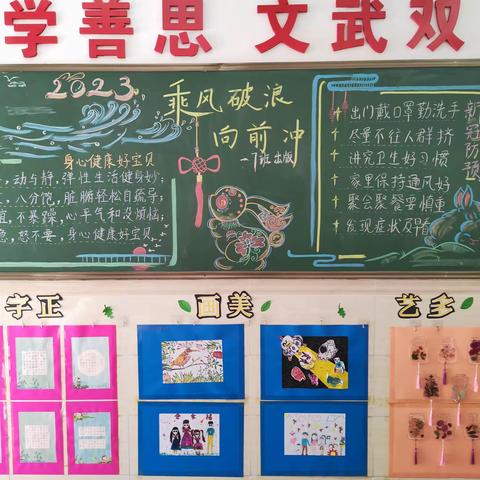 学善思 文武双
2023
乘风破浪
向前冲
一7班出版
身心健康好宝贝
动与静,弹性生活健身妙;
八分饱,脏腑轻松自疏导;
不暴躁,心平气和没烦恼;
怒不要,身心健康好宝贝
出门戴口罩勤洗手
尽量不往人群挤
讲究卫生好习惯
家里保持通风好
聚会聚餐要慎重
发现症状早看
新冠防预
字正
画美
艺多